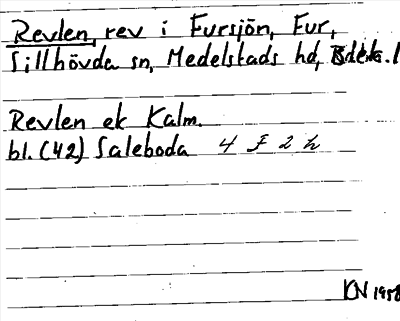 Revlen, rev i Fursjön, Fur,
Sillhövda sn, Medelstads hd, Blek. l
Revlen ek Kalm.
bl. (42) Saleboda 4 F 2 h
KN 1958